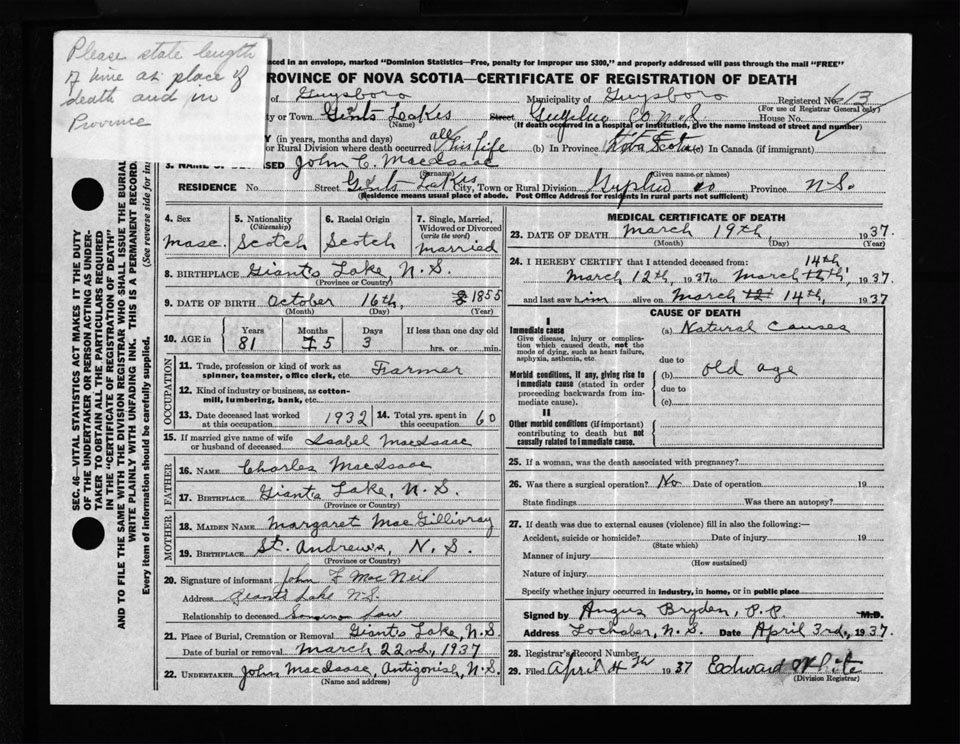 Please state length
of time at place of
death and in
Province
laced in an envelope, marked "Dominion Statistics—Free, penalty for improper use $300," and properly addressed will pass through the mail "FREE"
ROVINCE OF NOVA SCOTIA—CERTIFICATE OF REGISTRATION OF DEATH
of Guysboro Municipality of Guysboro Registered No. 13
(For use of Registrar General only)
ty or Town Gints Leakis Street House No.
(Name) (If death occurred in a hospital or institution, give the name instead of street and number)
Y (in years, months and days)
or Rural Division where death occurred all his life (b) In Province Nova Scotia (c) In Canada (if immigrant)
3. NAME OF DECEASED John C. MacIsaac
(Surname) (Given name or names)
RESIDENCE No. Street Gints Leakis City, Town or Rural Division Province N.S.
(Residence means usual place of abode. Post Office Address for residents in rural parts not sufficient)
4. Sex
Masc.
5. Nationality
(Citizenship)
Scotch
6. Racial Origin
Scotch
7. Single, Married,
Widowed or Divorced
(write the word)
Married
8. BIRTHPLACE Giant's Lake, N.S.
(Province or Country)
9. DATE OF BIRTH October 16th, 1855
(Month) (Day) (Year)
10. AGE in Years 81 Months 5 Days 3 If less than one day old
hrs. or min.
OCCUPATION
11. Trade, profession or kind of work as
spinner, teamster, office clerk, etc. Farmer
12. Kind of industry or business, as cotton-
mill, lumbering, bank, etc.
13. Date deceased last worked
at this occupation 1932
14. Total yrs. spent in
this occupation 60
15. If married give name of wife
or husband of deceased Isabel MacIsaac
FATHER
16. NAME Charles MacIsaac
17. BIRTHPLACE Giant's Lake, N.S.
MOTHER
18. MAIDEN NAME Margaret MacGillivray
19. BIRTHPLACE St. Andrew's, N.S.
(Province or Country)
20. Signature of informant John F MacNeil
Address Giants Lake N.S.
Relationship to deceased Son in law
21. Place of Burial, Cremation or Removal Giant's Lake, N.S.
Date of burial or removal March 22nd, 1937
22. UNDERTAKER John MacIsaac, Antigonish, N.S.
(Name and address)
MEDICAL CERTIFICATE OF DEATH
23. DATE OF DEATH March 19th, 1937.
(Month) (Day) (Year)
24. I HEREBY CERTIFY that I attended deceased from:
14th
March 12th, 1937 to March 1937
and last saw him alive on March 14th, 1937
CAUSE OF DEATH
I
Immediate cause
Give disease, injury or complica-
tion which caused death, not the
mode of dying, such as heart failure,
asphyxia, asthenia, etc.
(a) Natural Causes
due to
Morbid conditions, if any, giving rise to
immediate cause (stated in order
proceeding backwards from im-
mediate cause).
(b) Old age
due to
(c)
II
Other morbid conditions (if important)
contributing to death but not
causally related to immediate cause.
25. If a woman, was the death associated with pregnancy?
26. Was there a surgical operation? No Date of operation 19
State findings Was there an autopsy?
27. If death was due to external causes (violence) fill in also the following:—
Accident, suicide or homicide? Date of injury 19
(State which)
Manner of injury
(How sustained)
Nature of injury
Specify whether injury occurred in industry, in home, or in public place
Signed by Angus Bryden, P.P. M.D.
Address Lochaber, N.S. Date April 3rd, 1937.
28. Registrar's Record Number
29. Filed April 4th 1937 Edward White
(Division Registrar)
SEC. 46—VITAL STATISTICS ACT MAKES IT THE DUTY
OF THE UNDERTAKER OR PERSON ACTING AS UNDER-
TAKER TO OBTAIN ALL THE PARTICULARS REQUIRED
IN THE "CERTIFICATE OF REGISTRATION OF DEATH"
AND TO FILE THE SAME WITH THE DIVISION REGISTRAR WHO SHALL ISSUE THE BURIAL
WRITE PLAINLY WITH UNFADING INK. THIS IS A PERMANENT RECORD.
Every item of information should be carefully supplied. (See reverse side for in